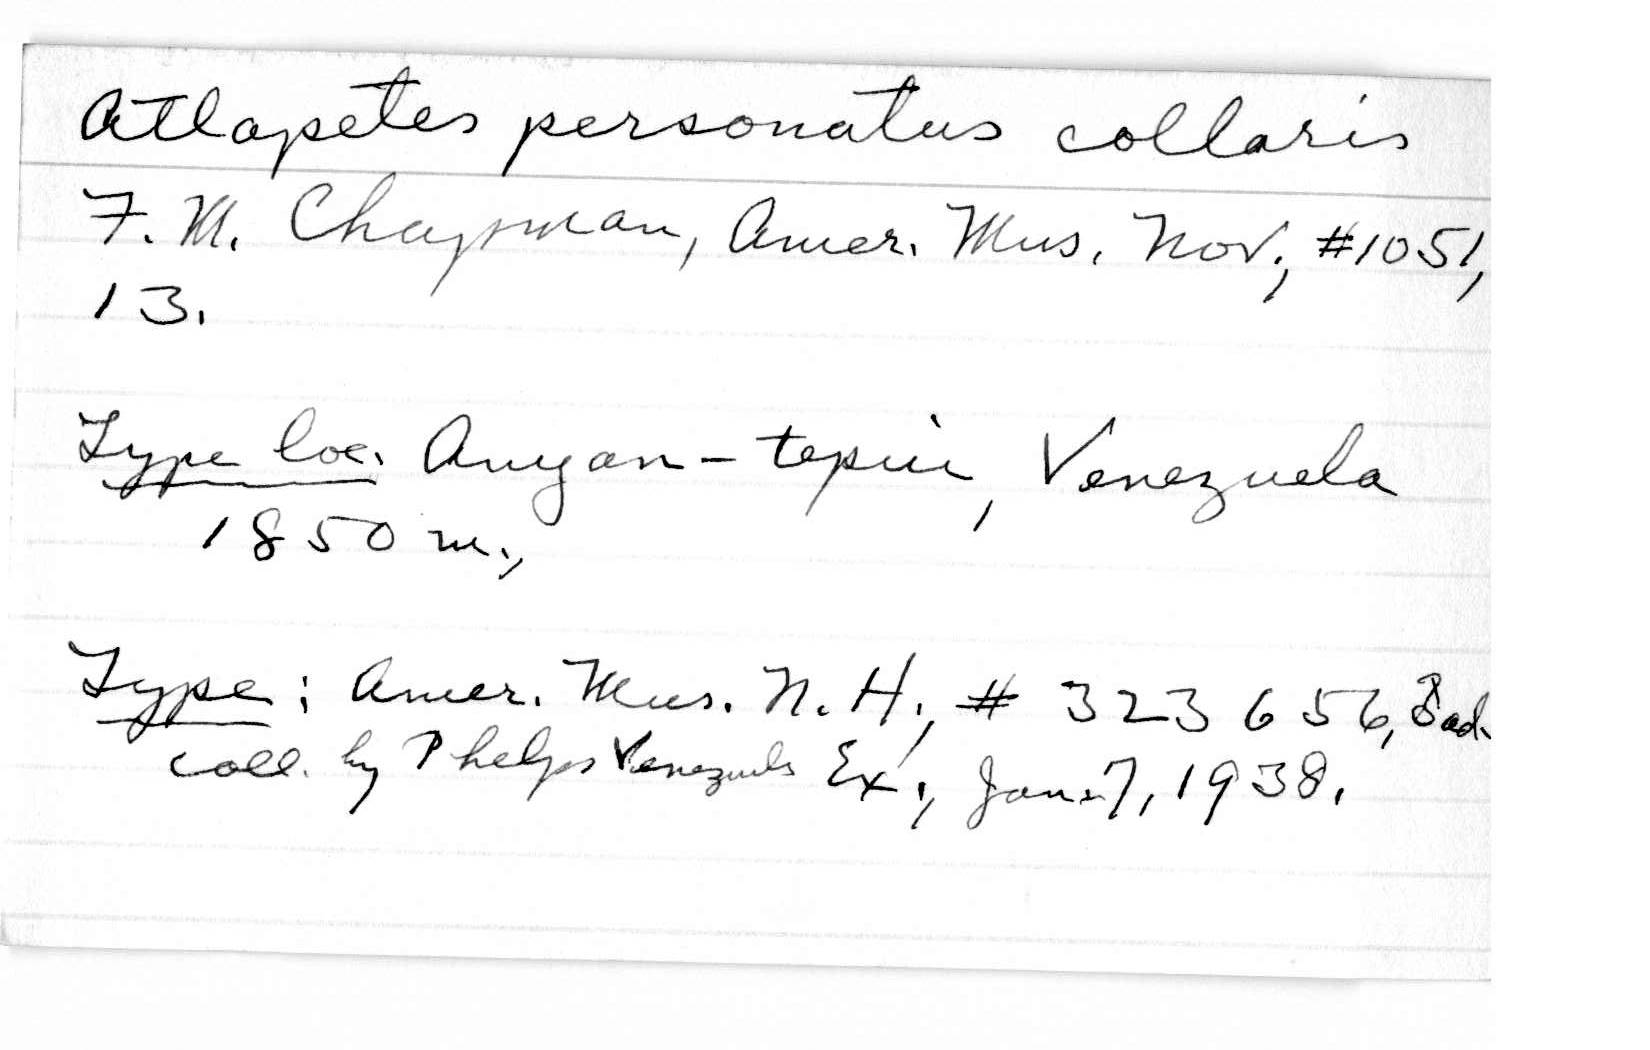 Atlapetes personatus collaris
F. M. Chapman, Amer. Mus. Nov., #1051,
13.
Type loc. Auyan-tepui, Venezuela
1850 m.,
Type: Amer. Mus. N. H., # 323656, ♂ ad.
coll. by Phelps Venezuela Ex., Jan. 7, 1938.